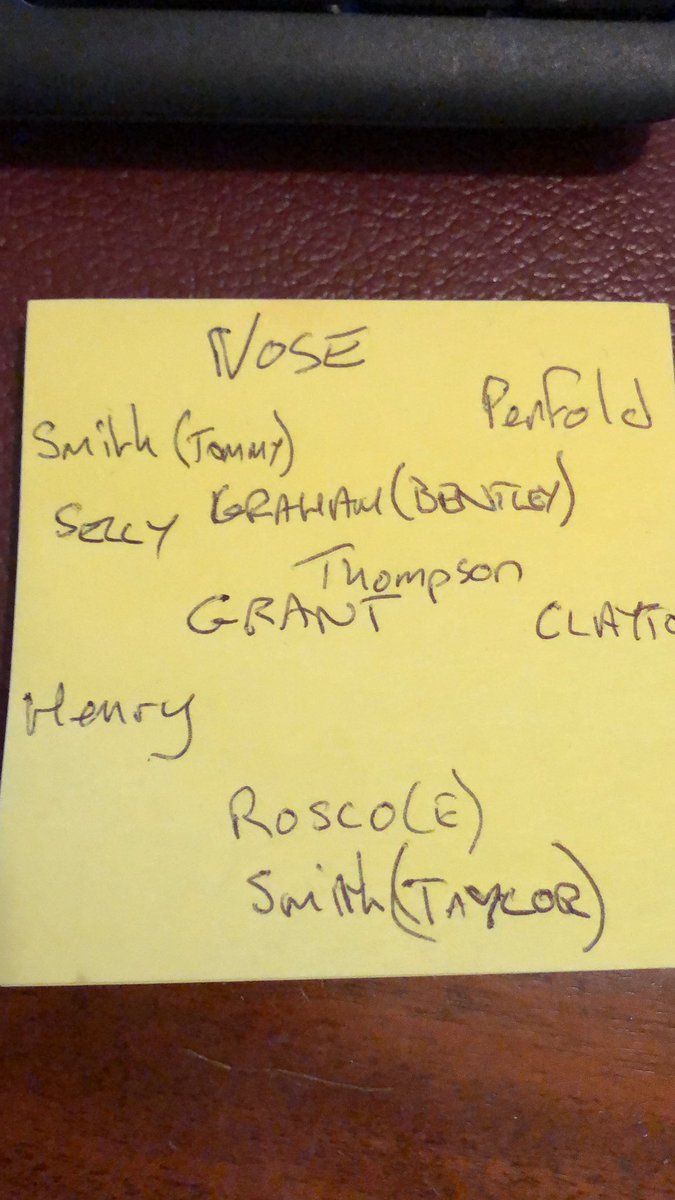 NOSE
Penfold
Smith (TOMMY)
GRAHAM (BENTLEY)
SELLY
Thompson
GRANT
CLAYTO
Henry
ROSCO(E)
Smith (TAYLOR)